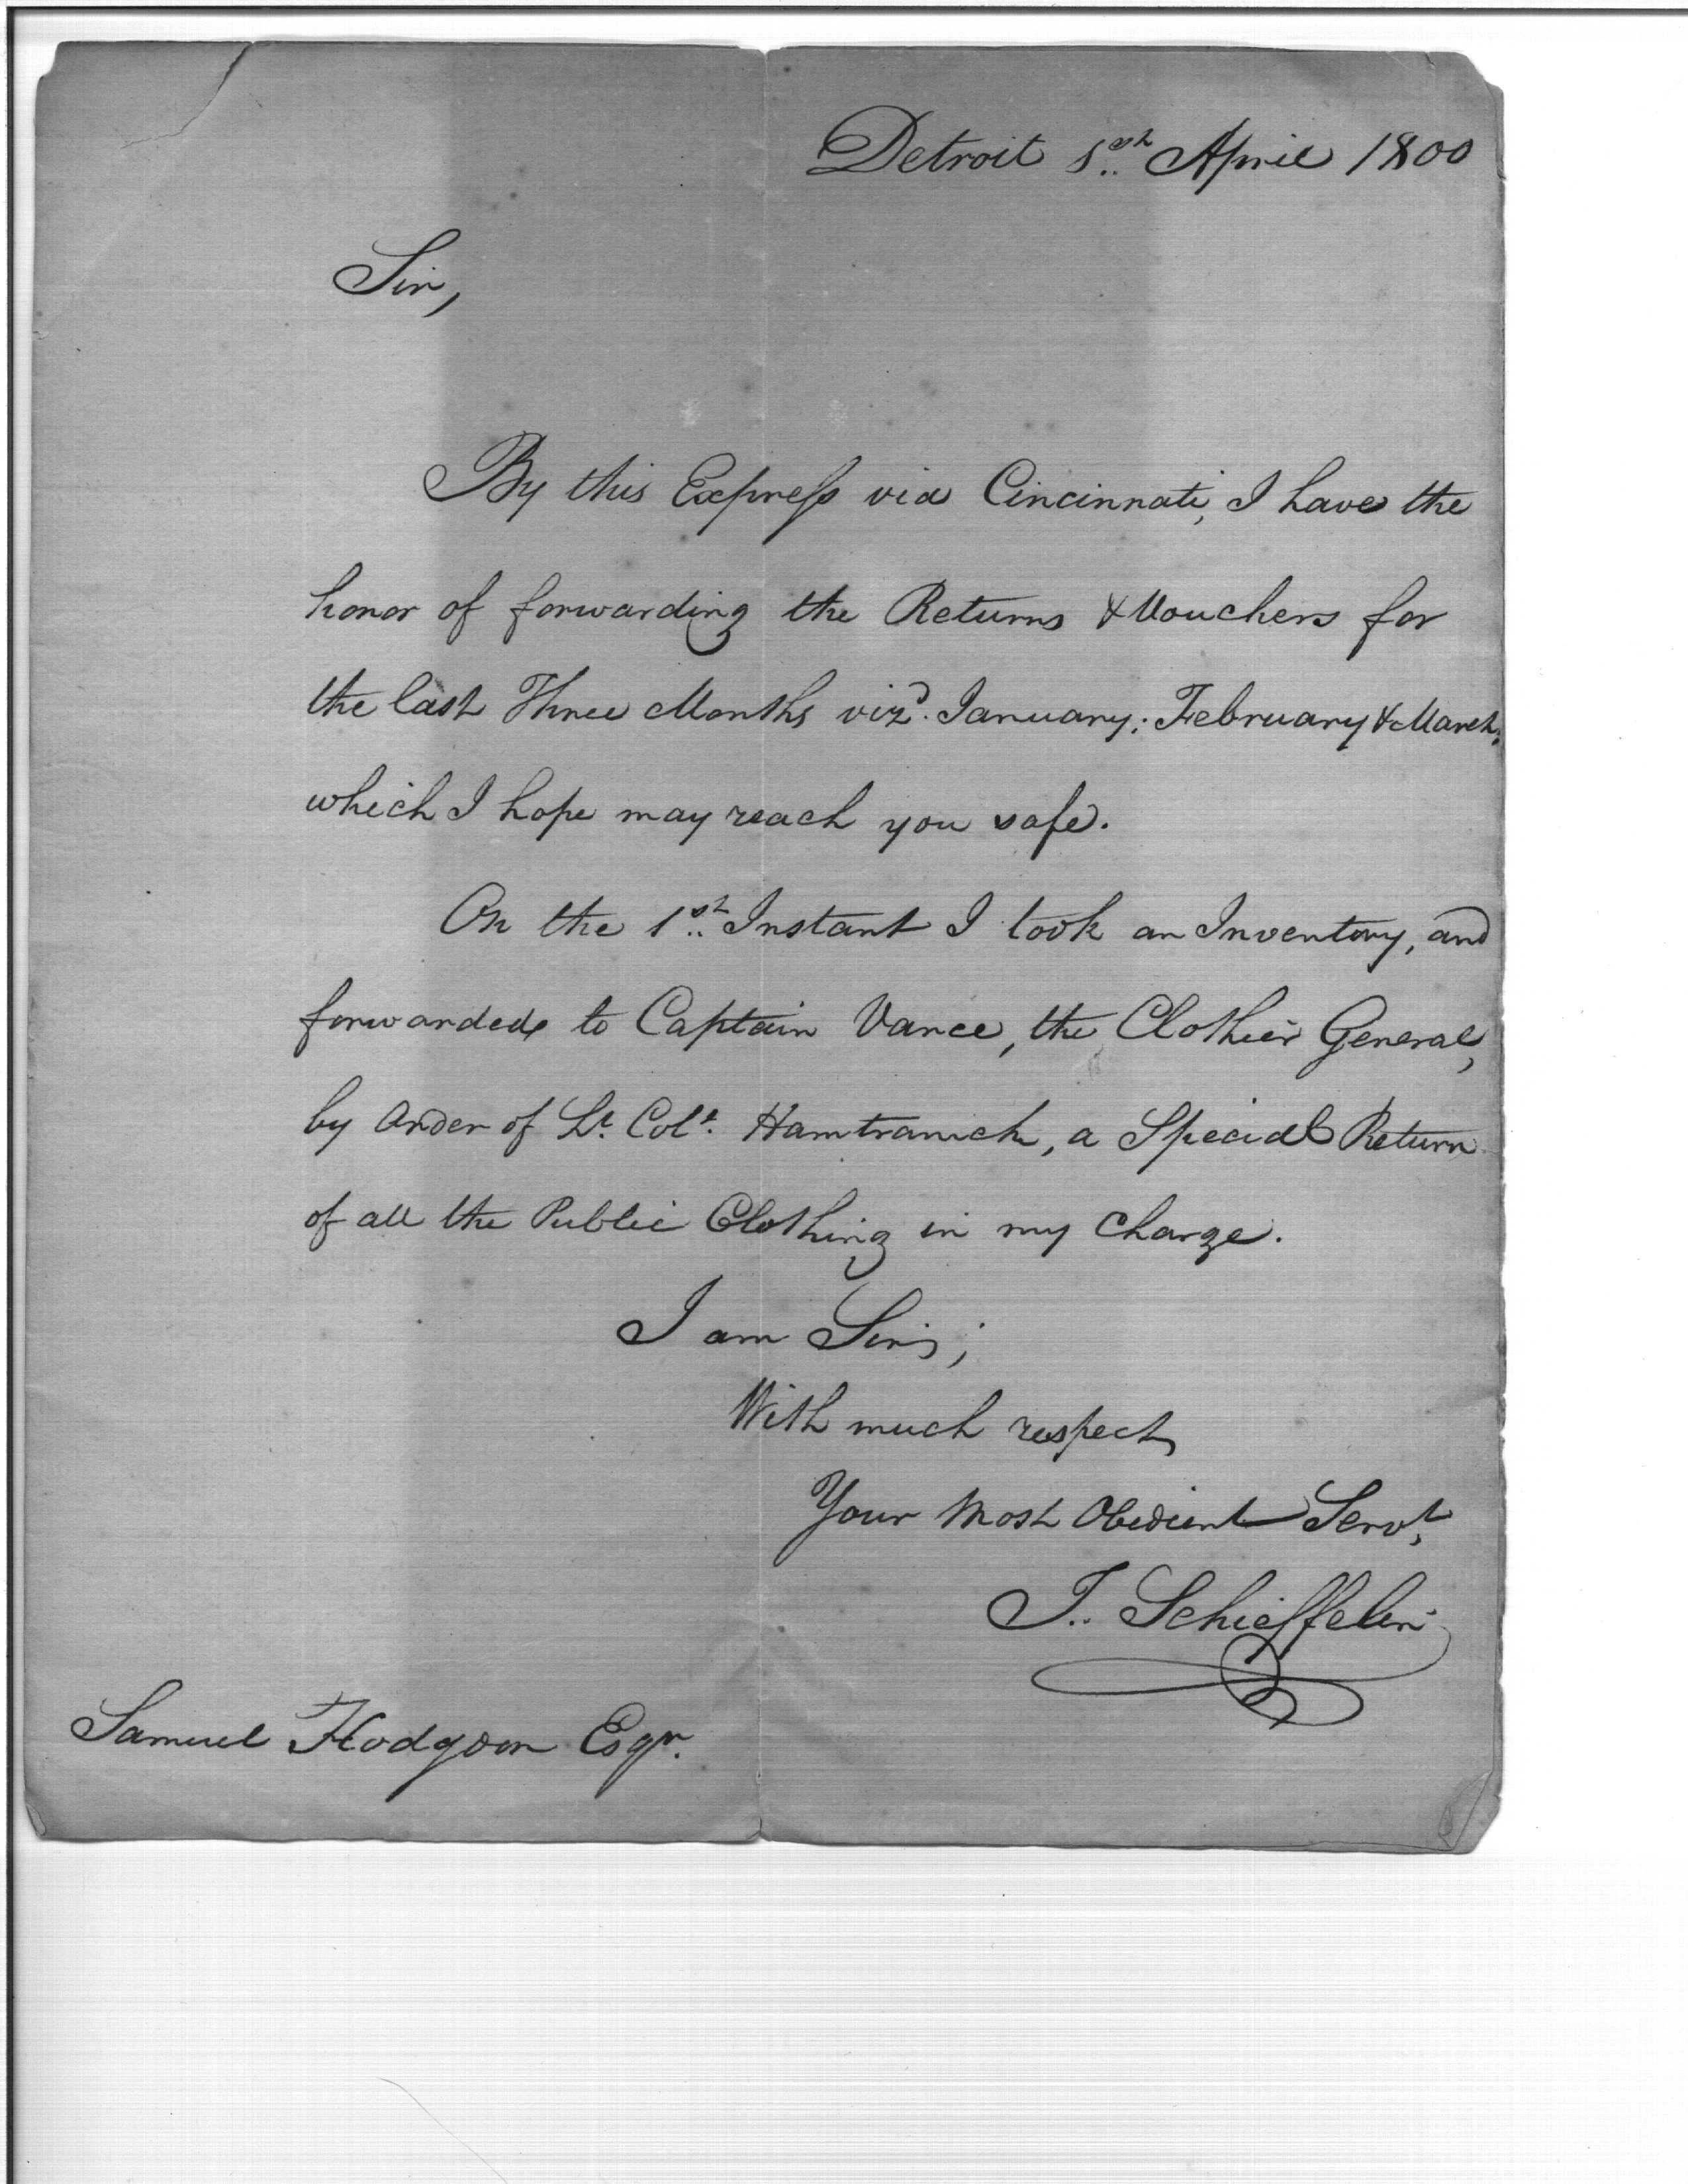 Detroit 5th April 1800
Sir,
By this Express via Cincinnati, I have the
honor of forwarding the Returns & Vouchers for
the last Three Months vizt. January; February & March;
which I hope may reach you safe.
On the 1st Instant I took an Inventory, and
forwarded to Captain Vance, the Clothier General,
by Order of Lt. Colo. Hamtramck, a Special Return
of all the Public Clothing in my Charge.
I am Sir,;
With much respect,
Your Most Obedient Servt,
J. Schieffelin
Samuel Hodgdon Esqr.